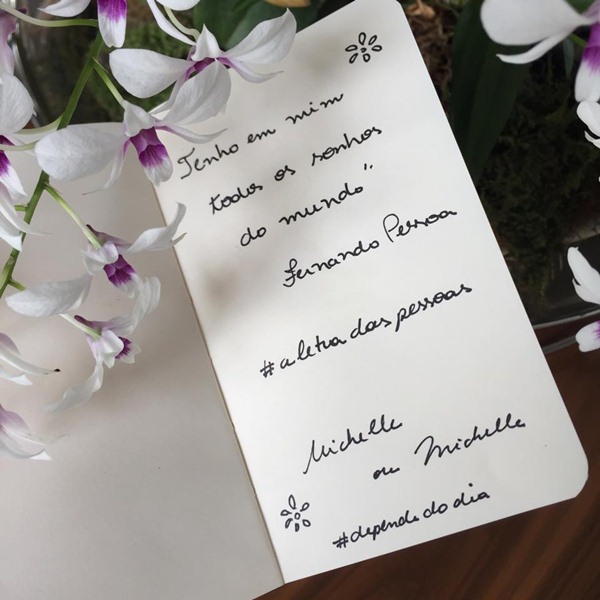 Tenho em mim
todos os sonhos
do mundo"
Fernando Pessoa
#aletradaspessoas
Michelle
ou Michelle
#dependedodia